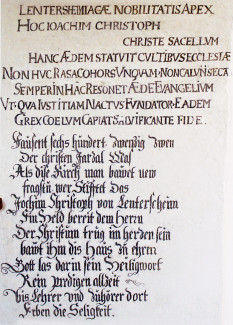 LENTERSHEIMIAGÆ NOBILITATIS APEX
HOC IOACHIM CHRISTOPH
CHRISTE SACELLVM
HANC ÆDEM STATVIT CVLTIBVS ECCLESIÆ
NON HVC RASA COHORS UNQVAM, NON CALVINI SECTA
SEMPER IN HÂC RESONET ÆDE EVANGELIUM
VT QVA IUSTITIAM NACTVS FUNDATOR EADEM
GREX COELVM CAPIAT SALVIFICANTE FIDE.
Tausent sechs hundert zwentzig zwen
Der christen Jarzal
Als dise Kirch man bauwet new
fragstu wer Stiftet das
Jochim Christoph von Lentersheim
Ein Held bereit dem Herrn
Der Christum trüg im hertzen sein
bawt ihm dis Haus zu ehrn
Gott las darin sein Heilig wort
Rein predigen allzeit
bis Lehrer und Zuhörer dort
Erben die Seligkeit.